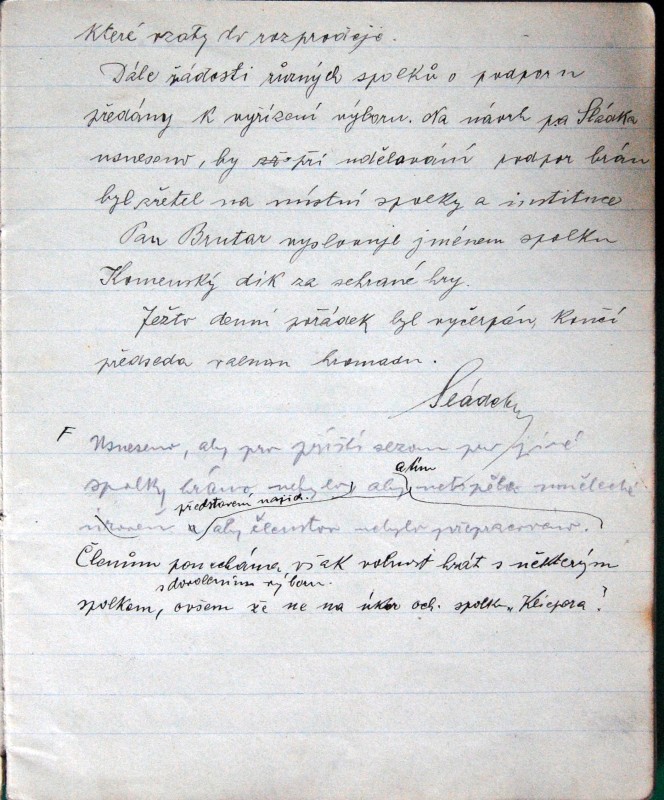 které vzaty do rozprodeje.
Dále žádosti různých spolků o podporu
předány k vyřízení výboru. Na návrh pa Sládka
usneseno, by při udělování podpor brán
byl zřetel na místní spolky a instituce
Pan Brutar vyslovuje jménem spolku
Komenský dík za sehrané hry.
Ježto denní pořádek byl vyčerpán, končí
předseda valnou hromadu.
Sládek
F Usneseno, aby pro příští sezonu pro jiné
a tím
spolky hráno nebylo, aby netrpěla umělecká
představení našich
úroveň a aby členstvo nebylo přepracováno.
Členům ponechána však volnost hrát s některým
s dovolením výboru
spolkem, ovšem že ne na úkor och. spolku „Klicpera".